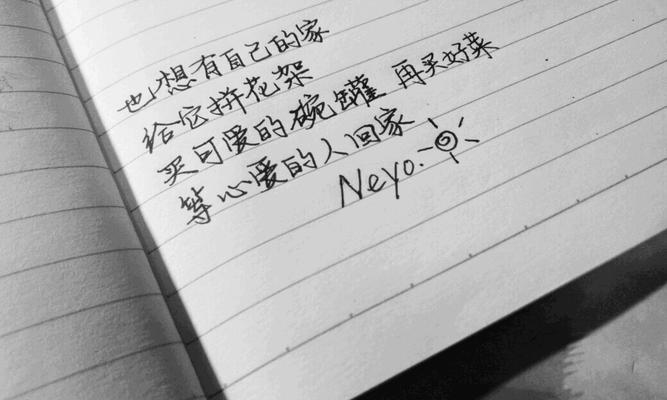 也想有自己的家
给它拼花架
买可爱的碗罐 再买好菜
等心爱的人回家
Neyo.